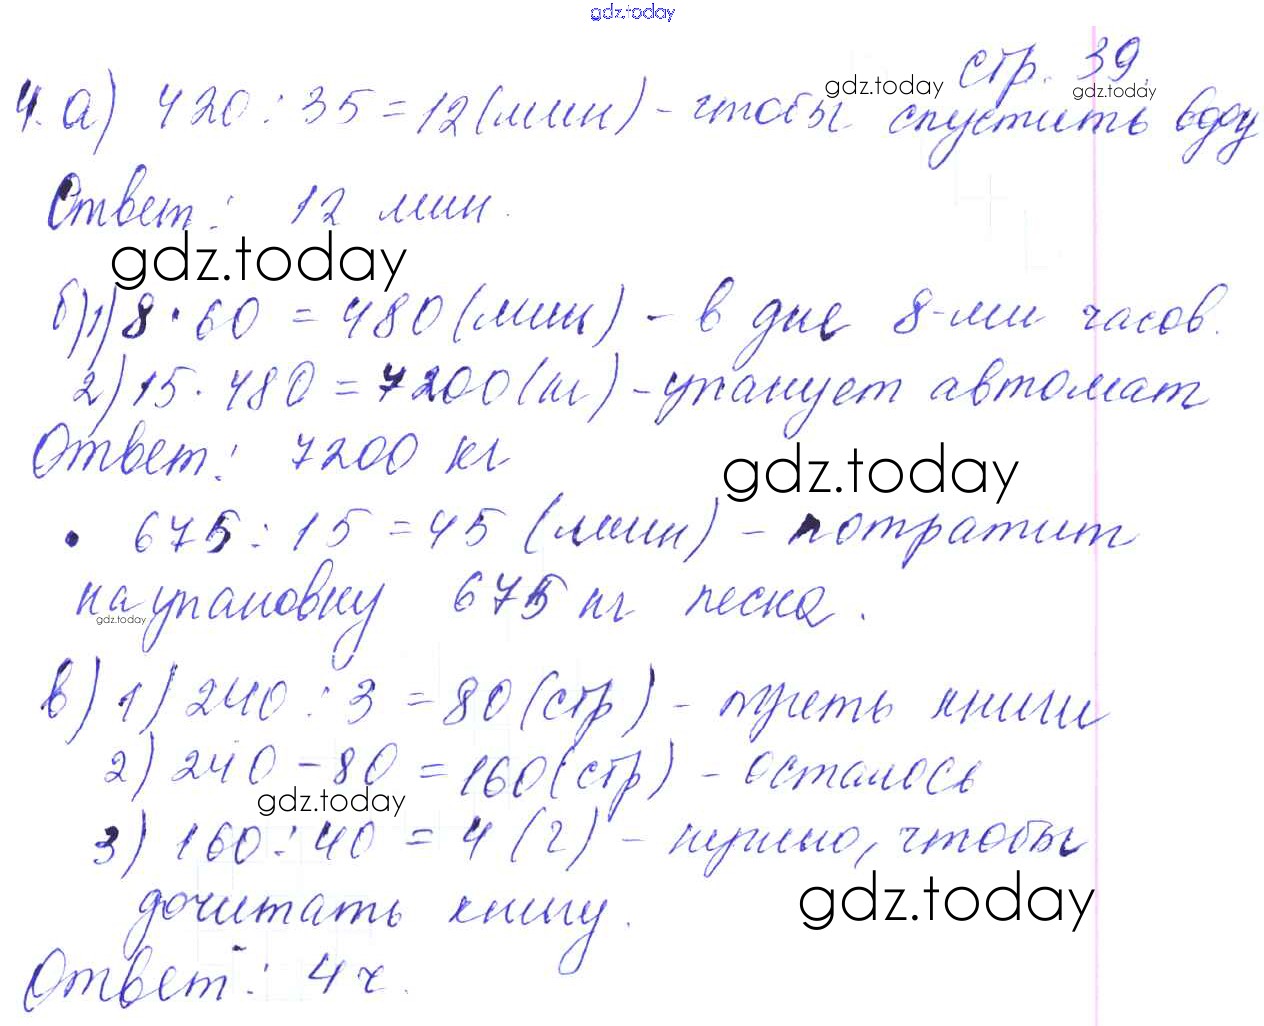 gdz.today
стр. 39
gdz.today
gdz.today
4. а) 420 : 35 = 12 (мин) - чтобы спустить воду
Ответ: 12 мин.
gdz.today
б) 1) 8 · 60 = 480 (мин) - в дне 8-ми часов.
2) 15 · 480 = 7200 (кг) - упакует автомат
Ответ: 7200 кг
gdz.today
• 675 : 15 = 45 (мин) - потратит
на упаковку 675 кг песка.
gdz.today
в) 1) 240 : 3 = 80 (стр) - треть книги
2) 240 - 80 = 160 (стр) - осталось
gdz.today
3) 160 : 40 = 4 (ч) - нужно, чтобы
дочитать книгу.
gdz.today
Ответ: 4 ч.